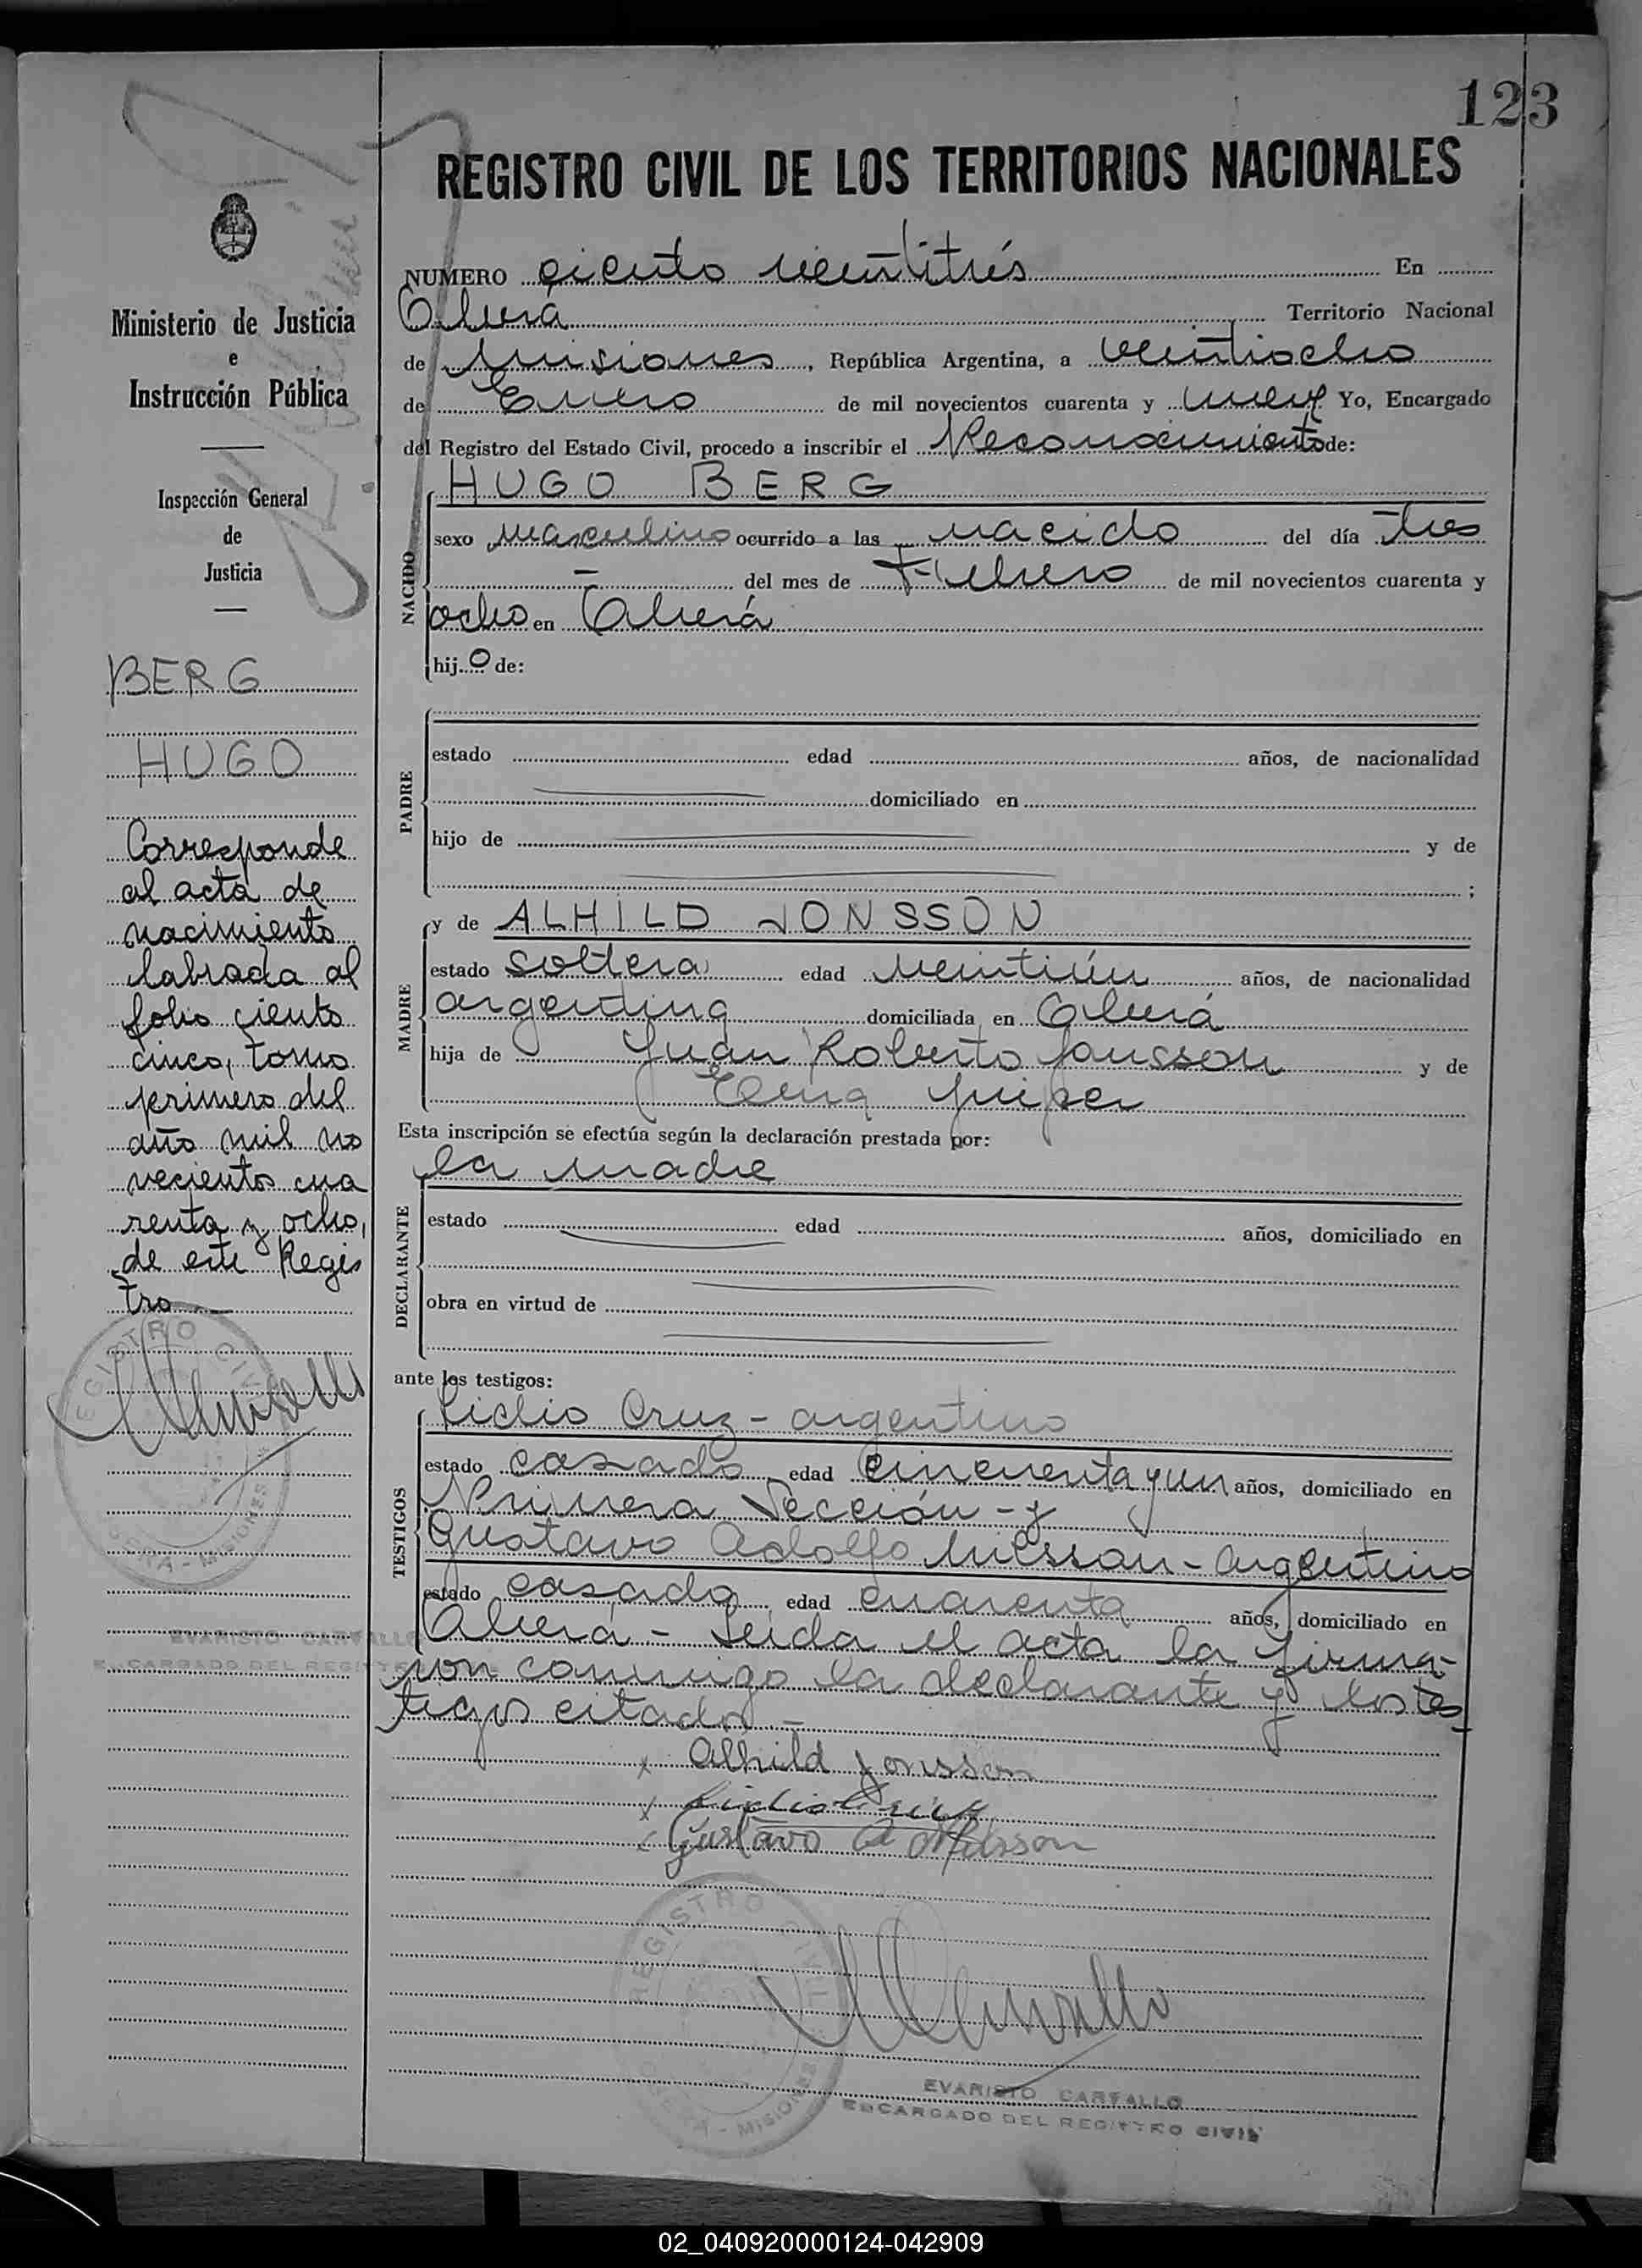 123
REGISTRO CIVIL DE LOS TERRITORIOS NACIONALES
Ministerio de Justicia
e
Instrucción Pública
Inspección General
de
Justicia
BERG
HUGO
Corresponde
al acta de
nacimiento
labrada al
folio ciento
cinco, tomo
primero del
año mil no
vecientos cua
renta y ocho,
de este Regis
tro
REGISTRO CIVIL
OBERÁ - MISIONES
EVARISTO CARVALLO
ENCARGADO DEL REGISTRO
NUMERO ciento veintitrés En
Oberá Territorio Nacional
de Misiones, República Argentina, a veintiocho
de Enero de mil novecientos cuarenta y nueve Yo, Encargado
del Registro del Estado Civil, procedo a inscribir el Reconocimiento de:
NACIDO
HUGO BERG
sexo masculino ocurrido a las nacido del día tres
— del mes de Febrero de mil novecientos cuarenta y
ocho en Oberá
hijo de:
PADRE
estado edad años, de nacionalidad
domiciliado en
hijo de y de
;
MADRE
y de ALHILD JONSSON
estado soltera edad veintiún años, de nacionalidad
argentina domiciliada en Oberá
hija de Juan Roberto Jonsson y de
Elena
Esta inscripción se efectúa según la declaración prestada por:
la madre
DECLARANTE
estado edad años, domiciliado en
obra en virtud de
ante los testigos:
TESTIGOS
Lidio Cruz - argentino
estado casado edad cincuenta y un años, domiciliado en
Primera Sección - y
Gustavo Adolfo Nilsson - argentino
estado casado edad cuarenta años, domiciliado en
Oberá - Leída el acta la firma-
ron conmigo la declarante y los tes
tigos citados -
x Alhild Jonsson
x Lidio Cruz
x Gustavo A Nilsson
REGISTRO CIVIL
OBERÁ - MISIONES
EVARISTO CARVALLO
ENCARGADO DEL REGISTRO CIVIL
02_040920000124-042909